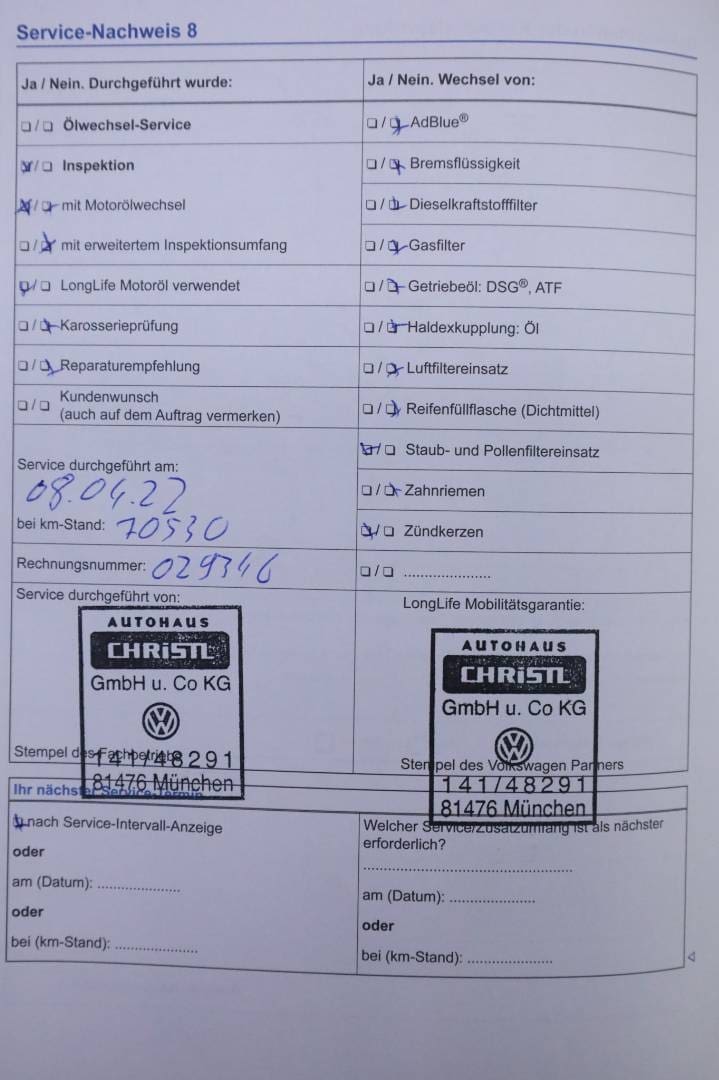 Service-Nachweis 8
Ja / Nein. Durchgeführt wurde:
❏ / ❏ Ölwechsel-Service
❏ / ❏ Inspektion
❏ / ❏ mit Motorölwechsel
❏ / ❏ mit erweitertem Inspektionsumfang
❏ / ❏ LongLife Motoröl verwendet
❏ / ❏ Karosserieprüfung
❏ / ❏ Reparaturempfehlung
❏ / ❏ Kundenwunsch
(auch auf dem Auftrag vermerken)
Service durchgeführt am:
08.04.22
bei km-Stand: 70530
Rechnungsnummer: 029346
Service durchgeführt von:
AUTOHAUS
CHRiSTL
GmbH u. Co KG
VW
141/48291
81476 München
Stempel des Fachbetriebs
Ja / Nein. Wechsel von:
❏ / ❏ AdBlue®
❏ / ❏ Bremsflüssigkeit
❏ / ❏ Dieselkraftstofffilter
❏ / ❏ Gasfilter
❏ / ❏ Getriebeöl: DSG®, ATF
❏ / ❏ Haldexkupplung: Öl
❏ / ❏ Luftfiltereinsatz
❏ / ❏ Reifenfüllflasche (Dichtmittel)
❏ / ❏ Staub- und Pollenfiltereinsatz
❏ / ❏ Zahnriemen
❏ / ❏ Zündkerzen
❏ / ❏ .....................
LongLife Mobilitätsgarantie:
AUTOHAUS
CHRiSTL
GmbH u. Co KG
VW
141/48291
81476 München
Stempel des Volkswagen Partners
Ihr nächster Service-Termin
❏ nach Service-Intervall-Anzeige
oder
am (Datum): ....................
oder
bei (km-Stand): ....................
Welcher Service/Zusatzumfang ist als nächster
erforderlich?
..................................................
am (Datum): .....................
oder
bei (km-Stand): .....................